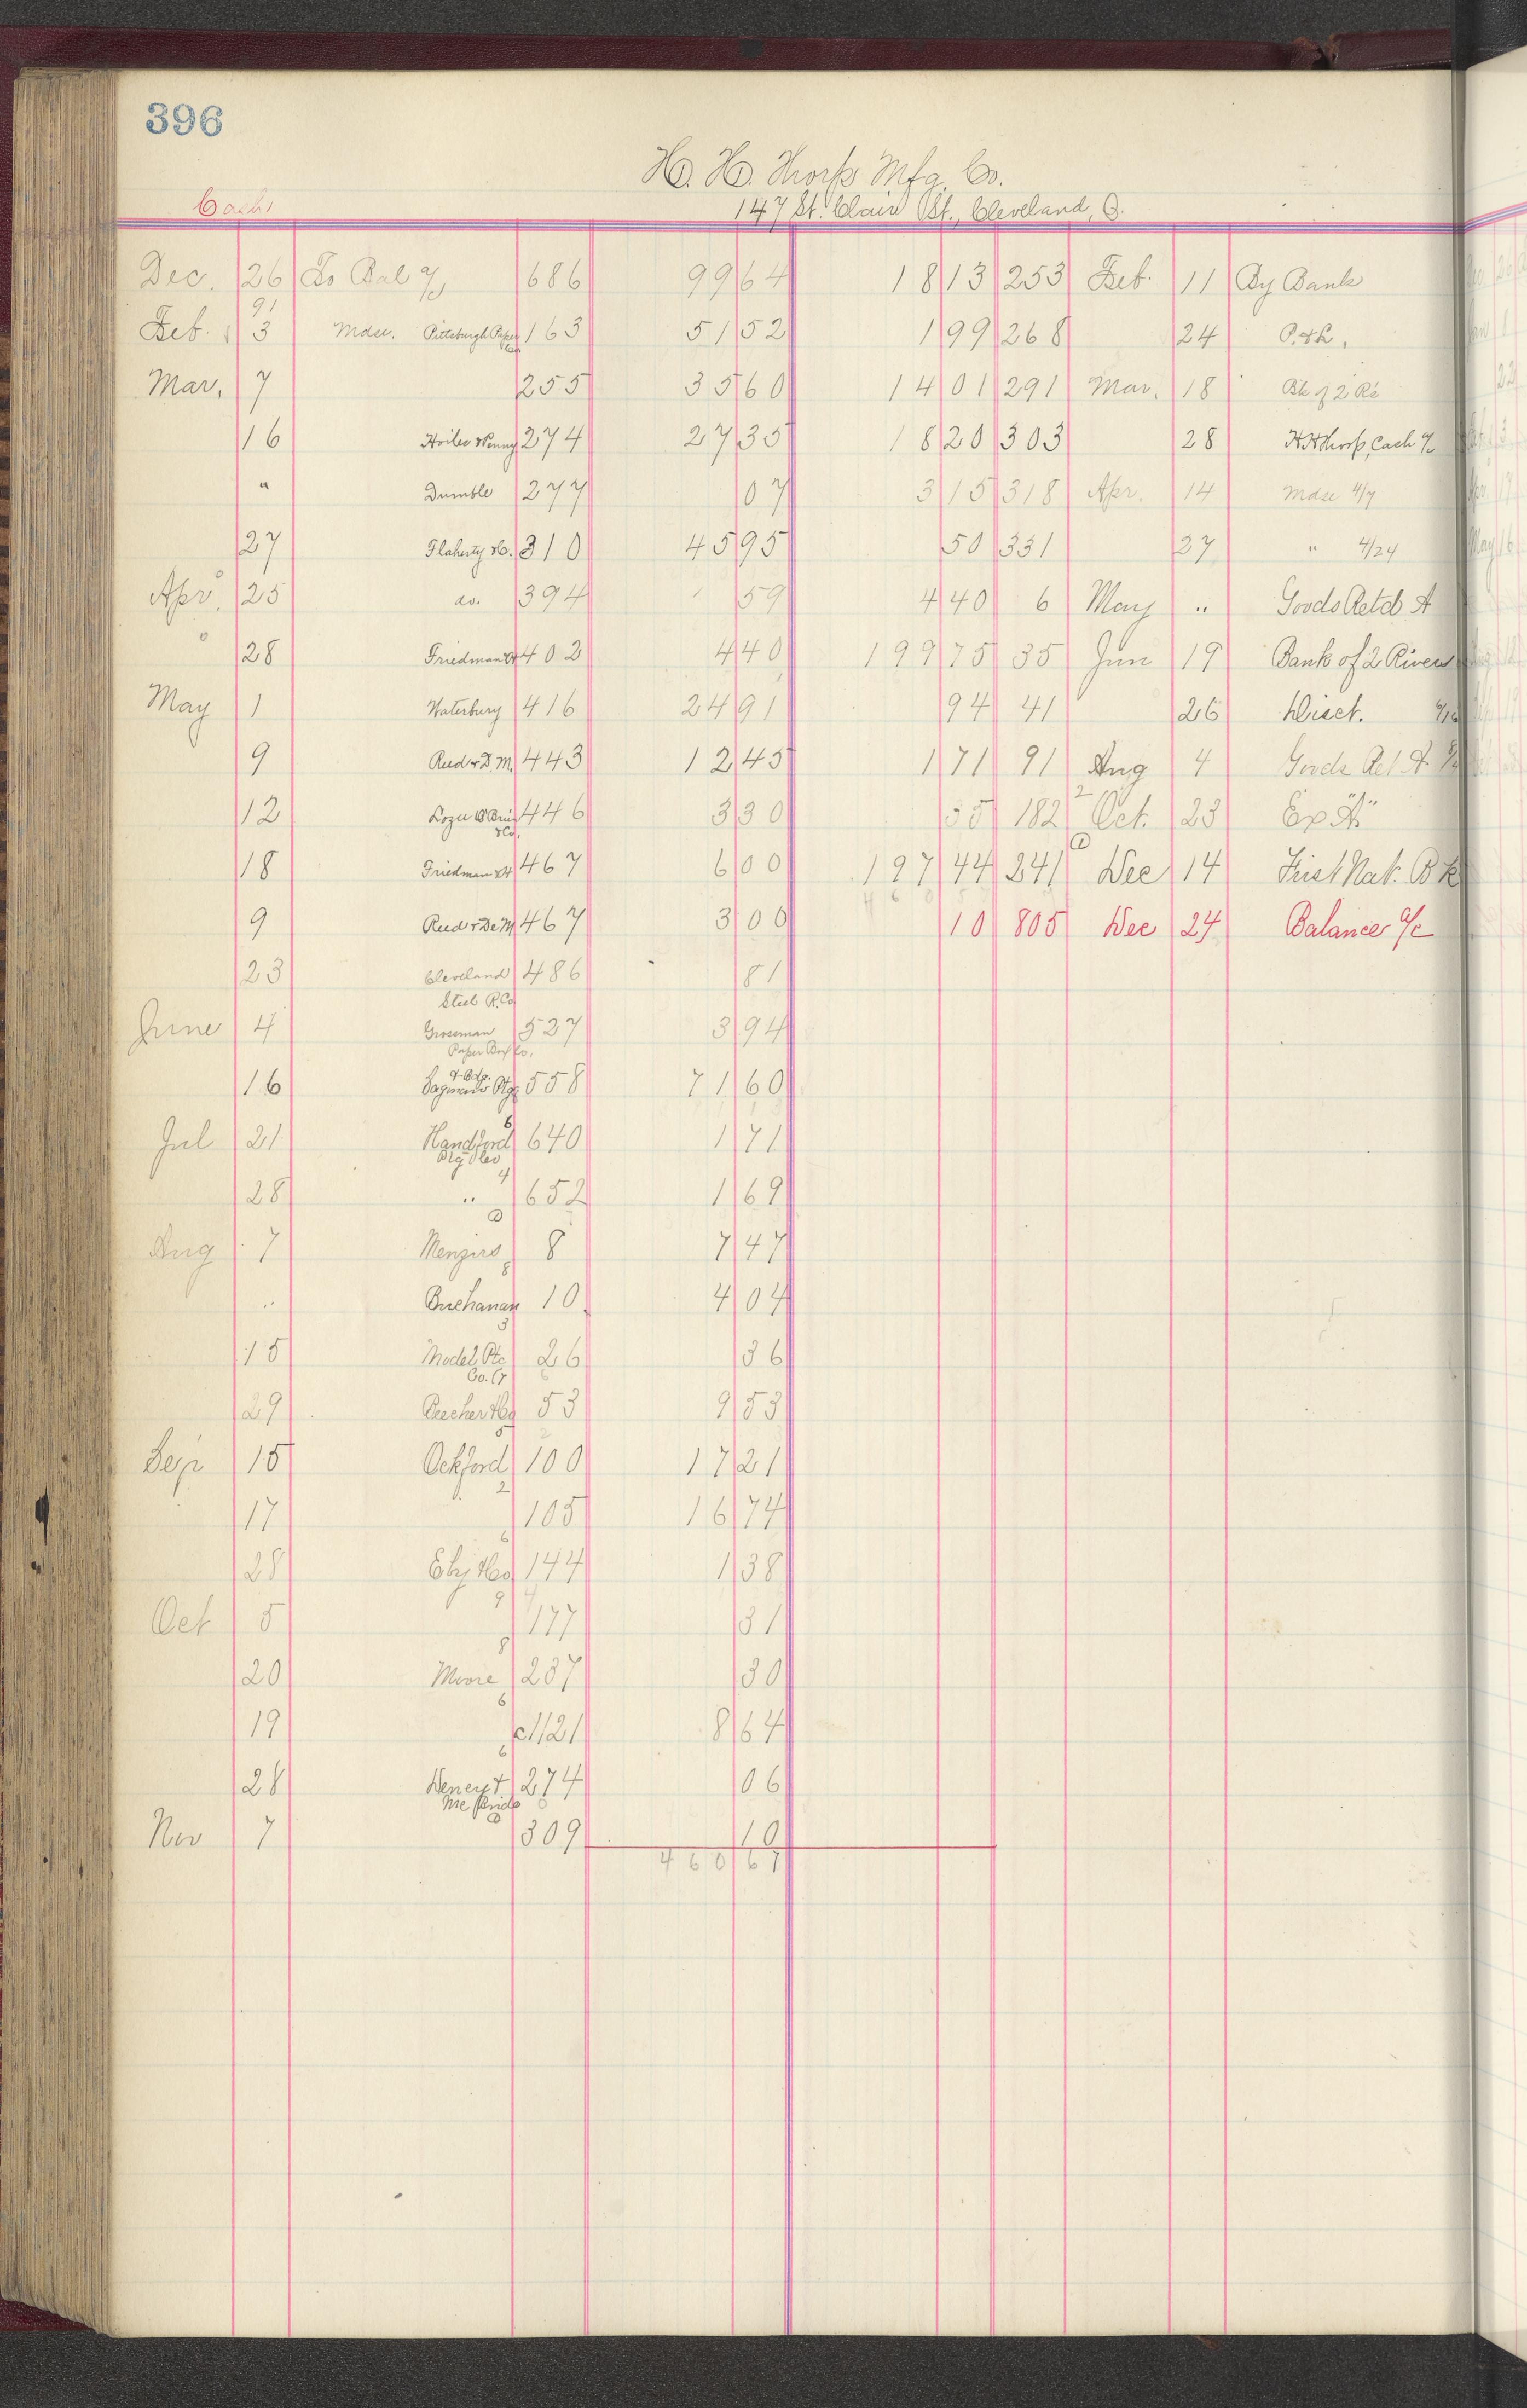 396
H. H. Thorp Mfg. Co.
Cash 147 St. Clair St., Cleveland, O.
Dec. 26 To Bal 686 99 64 18 13 253 Feb. 11 By Bank
91
Feb. 3 Mdse. Pittsburgh Paper 163 51 52 1 99 268 24
Mar. 7 255 35 60 14 01 291 Mar. 18 Bk of 2 Rs
16 274 27 35 18 20 303 28 HHThorp, Cash a/c
" Dumble 277 07 3 15 318 Apr. 14 Mdse 4/7
27 Flaherty & C. 310 45 95 50 331 27 " 4/24
Apr. 25 do. 394 59 4 40 6 May " Goods Retd A
" 28 Friedman 402 4 40 199 75 35 Jun 19 Bank of 2 Rivers
May 1 Waterbury 416 24 91 94 41 26 Disct.
9 Reed & D. M. 443 12 45 1 71 91 Aug 4 Goods Ret A
12 446 3 30 35 182 2 Oct. 23 Ex "A"
& Co.
18 Friedman 467 6 00 197 44 241 1 Dec 14 First Nat. Bk
9 Reed & De M 467 3 00 10 805 Dec 24 Balance a/c
23 Cleveland 486 81
Steel R. Co
June 4 Grossman 527 3 94
Paper Box Co.
& Bdg.
16 558 71 60
Jul 21 Handford 6 640 1 71
28 " 4 652 1 69
Aug 7 Menzies 8 7 47
" Buchanan 10 4 04
15 Model Ptg 26 36
Co.
29 Beecher & Co 53 9 53
Sep 15 Ockford 100 17 21
17 2 105 16 74
28 Eby & Co 144 1 38
Oct 5 9 177 31
20 Moore 237 30
19 c1121 8 64
28 274 06
McBride
Nov 7 309 10
460 67